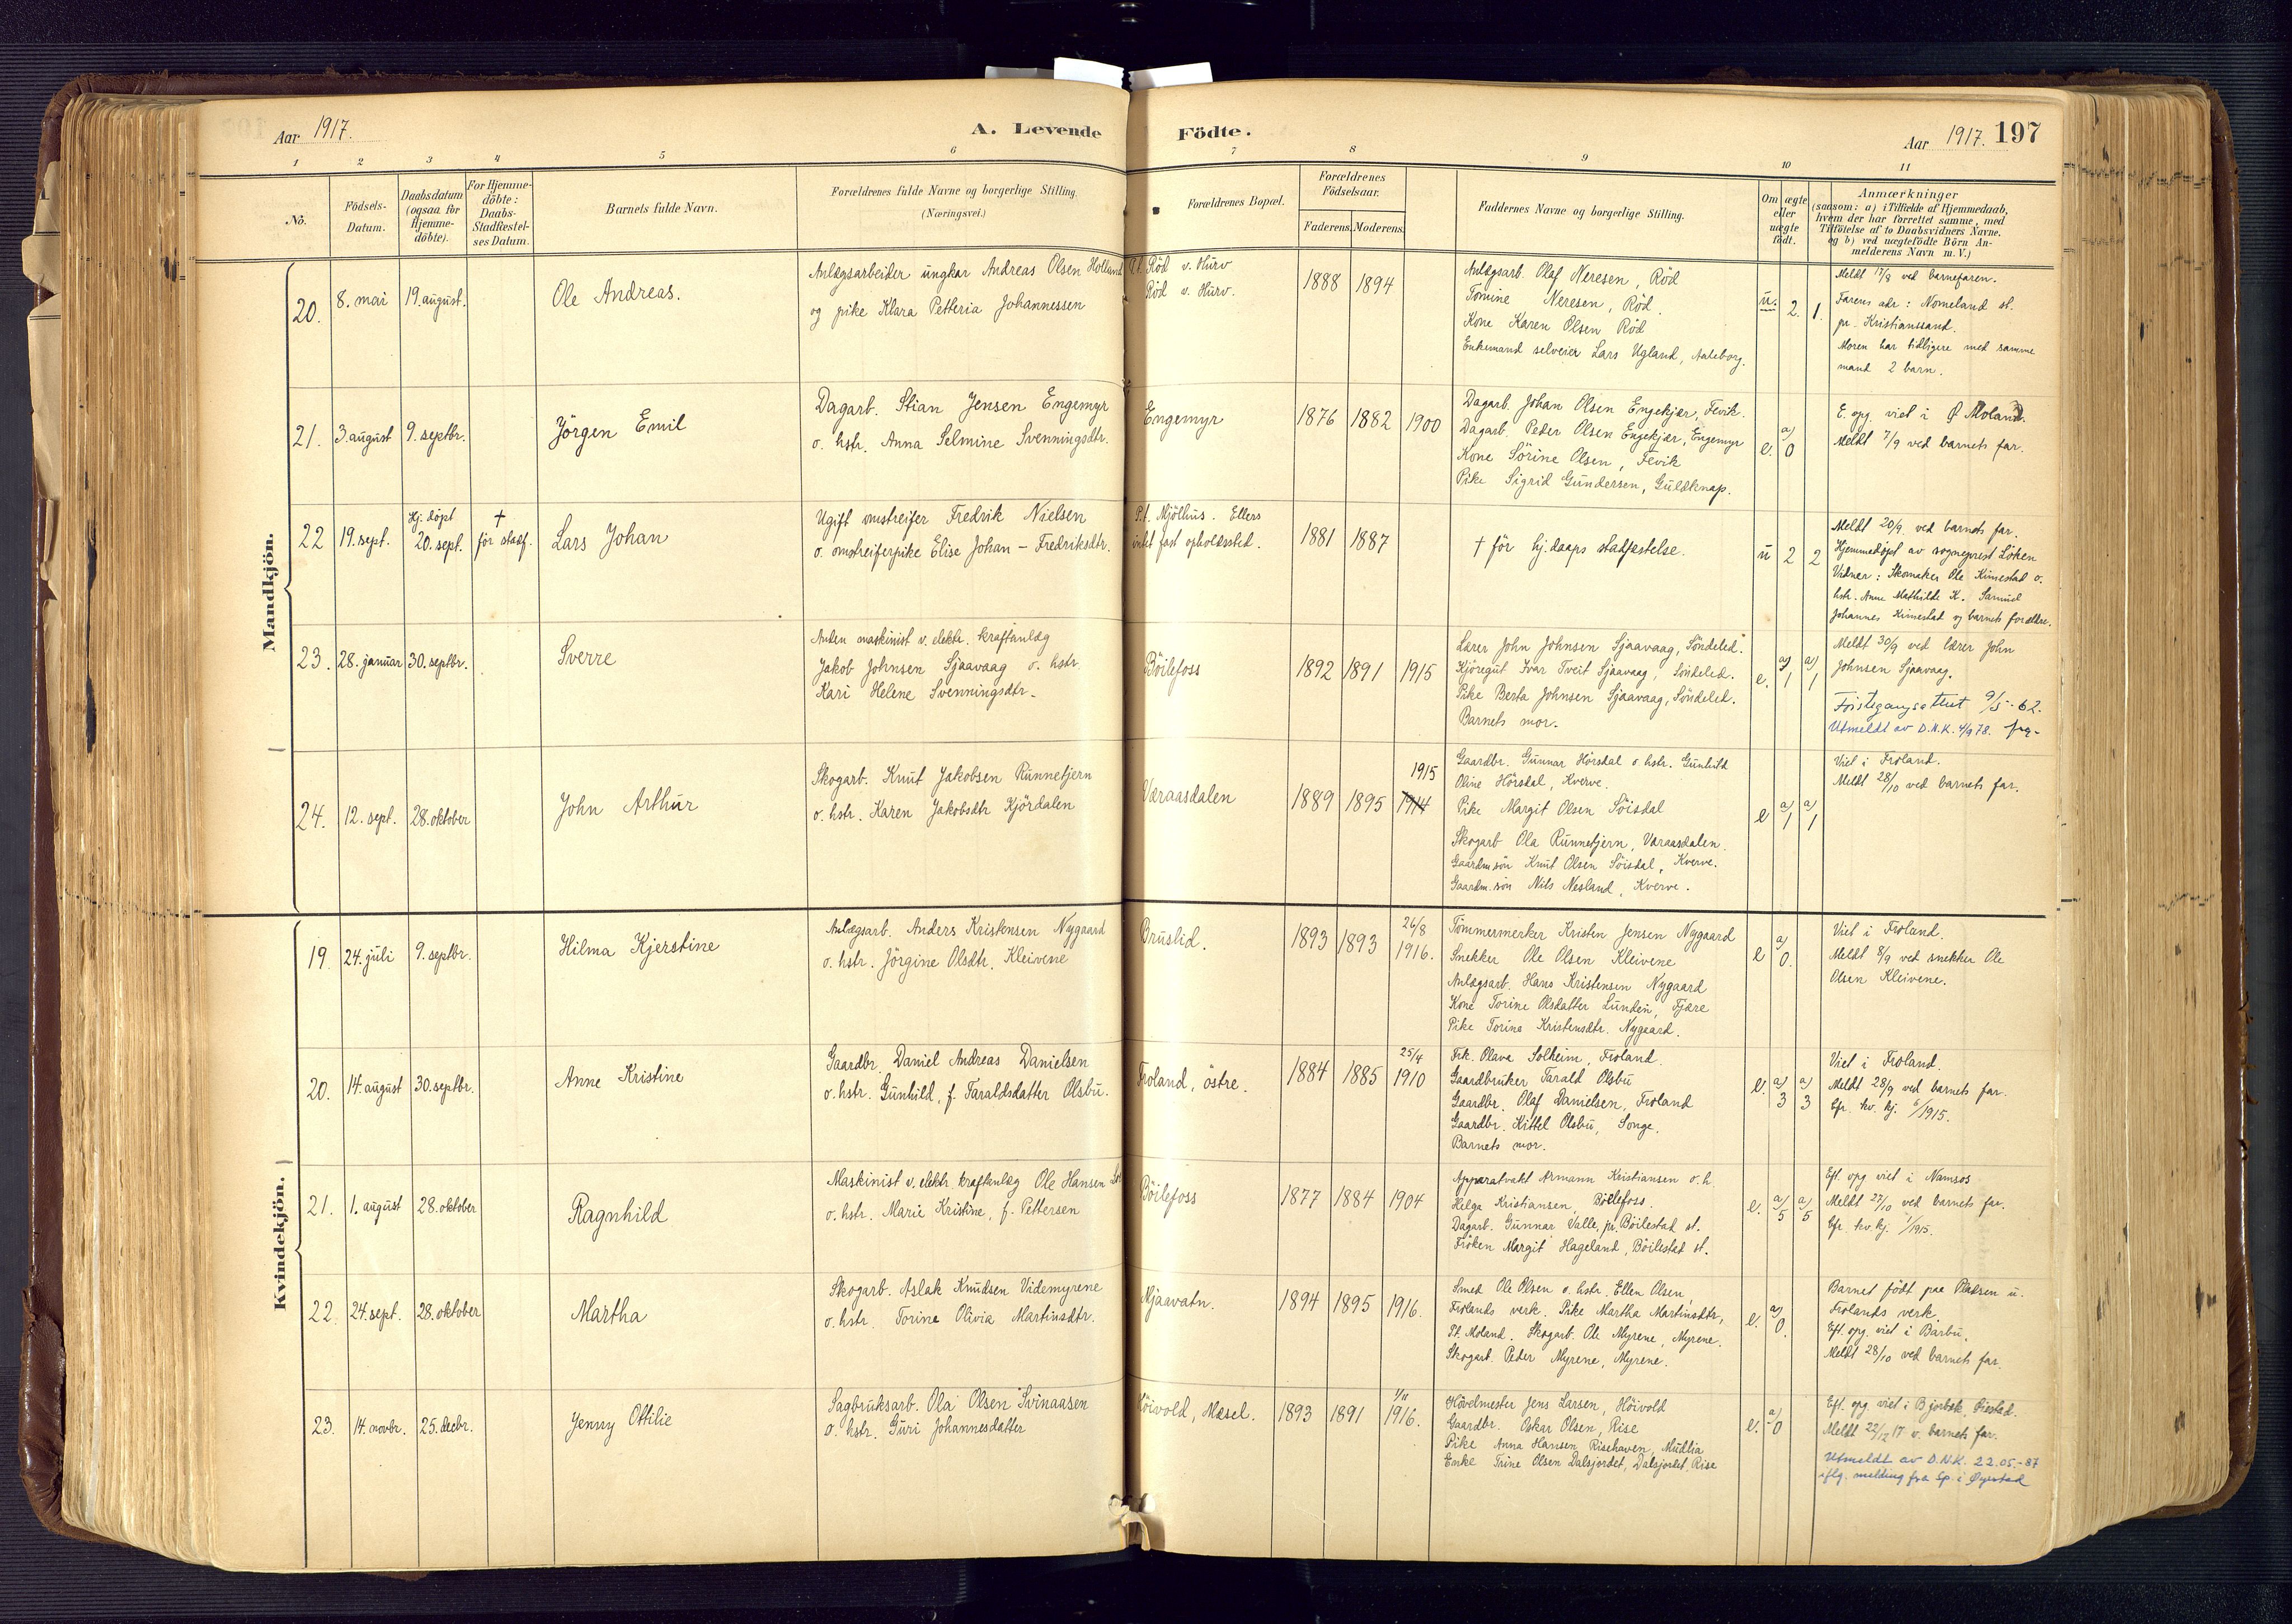 Aar 1917.
A. Levende Födte.
Aar 1917. 197
1 2 3 4 5 6 7 8 9 10 11
No.
Födsels-
Datum.
Daabsdatum
(ogsaa for
Hjemme-
döbte).
For Hjemme-
döbte:
Daabs-
Stadfæstel-
ses Datum.
Barnets fulde Navn.
Forældrenes fulde Navne og borgerlige Stilling.
(Næringsvei.)
Forældrenes Bopæl.
Forældrenes
Födselsaar.
Faderens. Moderens.
Faddernes Navne og borgerlige Stilling.
Om ægte
eller
uægte
födt.
Anmærkninger
(saasom: a) i Tilfælde af Hjemmedaab,
hvem der har forrettet samme, med
Tilföielse af to Daabsvidners Navne.
og b) ved uægtefödte Börn An-
melderens Navn m. V.)
Mandkjön.
20. 8. mai 19. august.
Ole Andreas.
Anlægsarbeider ungkar Andreas Olsen Holland
og pike Klara Petteria Johannessen
P.t. Röd v. Hurv
Röd v. Hurv.
1888 1894
Anlægsarb. Olaf Neresen, Röd
Tomine Neresen, Röd.
Kone Karen Olsen Röd
Enkemand selveier Lars Ugland,
u. 2. 1.
Meldt 17/8 ved barnefaren.
Farens adr: Nomeland st.
pr. Kristianssand.
Moren har tidligere med samme
mand 2 barn.
21. 3. august 9. septbr.
Jörgen Emil
Dagarb. Stian Jensen Engemyr
o. hstr. Anna Selmine Svenningsdtr.
Engemyr
1876 1882 1900
Dagarb. Johan Olsen Engekjær, Fevik.
Dagarb. Peder Olsen Engekjær, Engemyr
Kone Sörine Olsen, Fevik
Pike Sigrid Gundersen, Guldknap.
e. a/0
E. opg. viet i Ø Moland.
Meldt 7/9 ved barnets far.
22 19. sept. Hj. döpt
20. sept.
†
för stadf.
Lars Johan
Ugift omstreifer Fredrik Nielsen
o. omstreiferpike Elise Johan – Fredriksdtr.
P.t. Mjölhus. Ellers
intet fast opholdssted.
1881 1887
† för hj.daaps stadfestelse.
u 2 2
Meldt 20/9 ved barnets far.
Hjemmedöpt av sogneprest Löken
Vidner: Skomaker Ole Kimestad o.
hstr. Anne Mathilde K. Samuel
Johannes Kimestad og barnets forældre.
23. 28. januar 30. septbr.
Sverre
Anden maskinist v. elektr. kraftanlæg
Jakob Johnsen Sjaavaag o. hstr.
Kari Helene Svenningsdtr.
Böilefoss
1892 1891 1915
Lærer John Johnsen Sjaavaag, Söndeled.
Kjöregut Ivar Tveit Sjaavaag, Söndeled.
Pike Berta Johnsen Sjaavaag, Söndeled.
Barnets mor.
e. a/1 a/1
Meldt 30/9 ved lærer John
Johnsen Sjaavaag.
Förstegangsattest 9/5-62.
Utmeldt av D.N.K. 4/9 78.
24. 12. sept. 28. oktober
John Arthur
Skogarb. Knut Jakobsen Runnetjern
o. hstr. Karen Jakobsdtr Kjördalen
Væraasdalen
1889 1895 1915
1914
Gaardbr. Gunnar Hörsdal o. hstr. Gunhild
Oline Hörsdal, Kverve.
Pike Margit Olsen Söisdal
Skogarb Ola Runnetjern, Væraasdalen.
Gaardm.sön Knut Olsen Söisdal, Kverve.
Gaardm.sön Nils Nesland, Kverve.
e a/1 a/1
Viet i Froland.
Meldt 28/10 ved barnets far.
Kvindekjön.
19. 24. juli 9. septbr.
Hilma Kjerstine
Anlægsarb. Anders Kristensen Nygaard
o. hstr. Jörgine Olsdtr. Kleivene
Bruslid.
1893 1893 26/8
1916.
Tömmermerker Kristen Jensen Nygaard
Snekker Ole Olsen Kleivene
Anlægsarb. Hans Kristensen Nygaard
Kone Torine Olsdatter Lunden, Fjære
Pike Torine Kristensdtr. Nygaard.
e a/0.
Viet i Froland.
Meldt 8/9 ved snekker Ole
Olsen Kleivene.
20. 14. august 30. septbr.
Anne Kristine
Gaardbr. Daniel Andreas Danielsen
o. hstr. Gunhild, f. Taraldsdatter Olsbu.
Froland, östre.
1884 1885 25/4
1910
Frk. Olava Solheim, Froland.
Gaardbruker Tarald Olsbu
Gaardbr. Olaf Danielsen, Froland
Gaardbr. Kittel Olsbu, Songe.
Barnets mor.
e. a/3 a/3
Viet i Froland.
Meldt 28/9 ved barnets far.
Cfr. kv. kj. 6/1915.
21. 1. august 28. oktober
Ragnhild
Maskinist v. elektr. kraftanlæg Ole Hansen
o. hstr. Marie Kristine, f. Pettersen
Böilefoss
1877 1884 1904
Apparatvakt Armann Kristiansen o. h.
Helga Kristiansen, Böilefoss.
Dagarb. Gunnar Valle, pr. Böilestad st.
Fröken Margit Hageland, Böilestad st.
e. a/5 a/5
Eft. opg viet i Namsos
Meldt 27/10 ved barnets far.
Cfr. kv. kj. 1/1915.
22. 24. sept. 28. oktober
Martha
Skogarb. Aslak Knudsen Videmyrene
o. hstr. Torine Olivia Martinsdtr.
Mjaavatn.
1894 1895 1916.
Smed Ole Olsen o. hstr. Ellen Olsen,
Frolands verk. Pike Martha Martinsdtr,
Skogarb. Ole Myrene, Myrene.
Skogarb. Peder Myrene, Myrene.
e. a/0.
Barnet födt paa Pladsen u.
Frolands verk.
Eft. opg. viet i Barbu.
Meldt 28/10 ved barnets far.
23. 14. novbr. 25. decbr.
Jenny Ottilie
Sagbruksarb. Ola Olsen Svinaasen
o. hstr. Guri Johannesdatter
Höivold, Mæsel.
1893 1891 1/11
1916.
Hövelmester Jens Larsen, Höivold
Gaardbr. Oskar Olsen, Rise
Pike Anna Hansen Risehaven, Mudlia
Enke Trine Olsen Dalsjordet, Dalsjordet, Rise
e. a/0
Eft. opg. viet i
Meldt 22/12 17 v. barnets far.
Utmeldt av D.N.K. 22.05.-87
iflg. melding fra Sp. i Øyestad